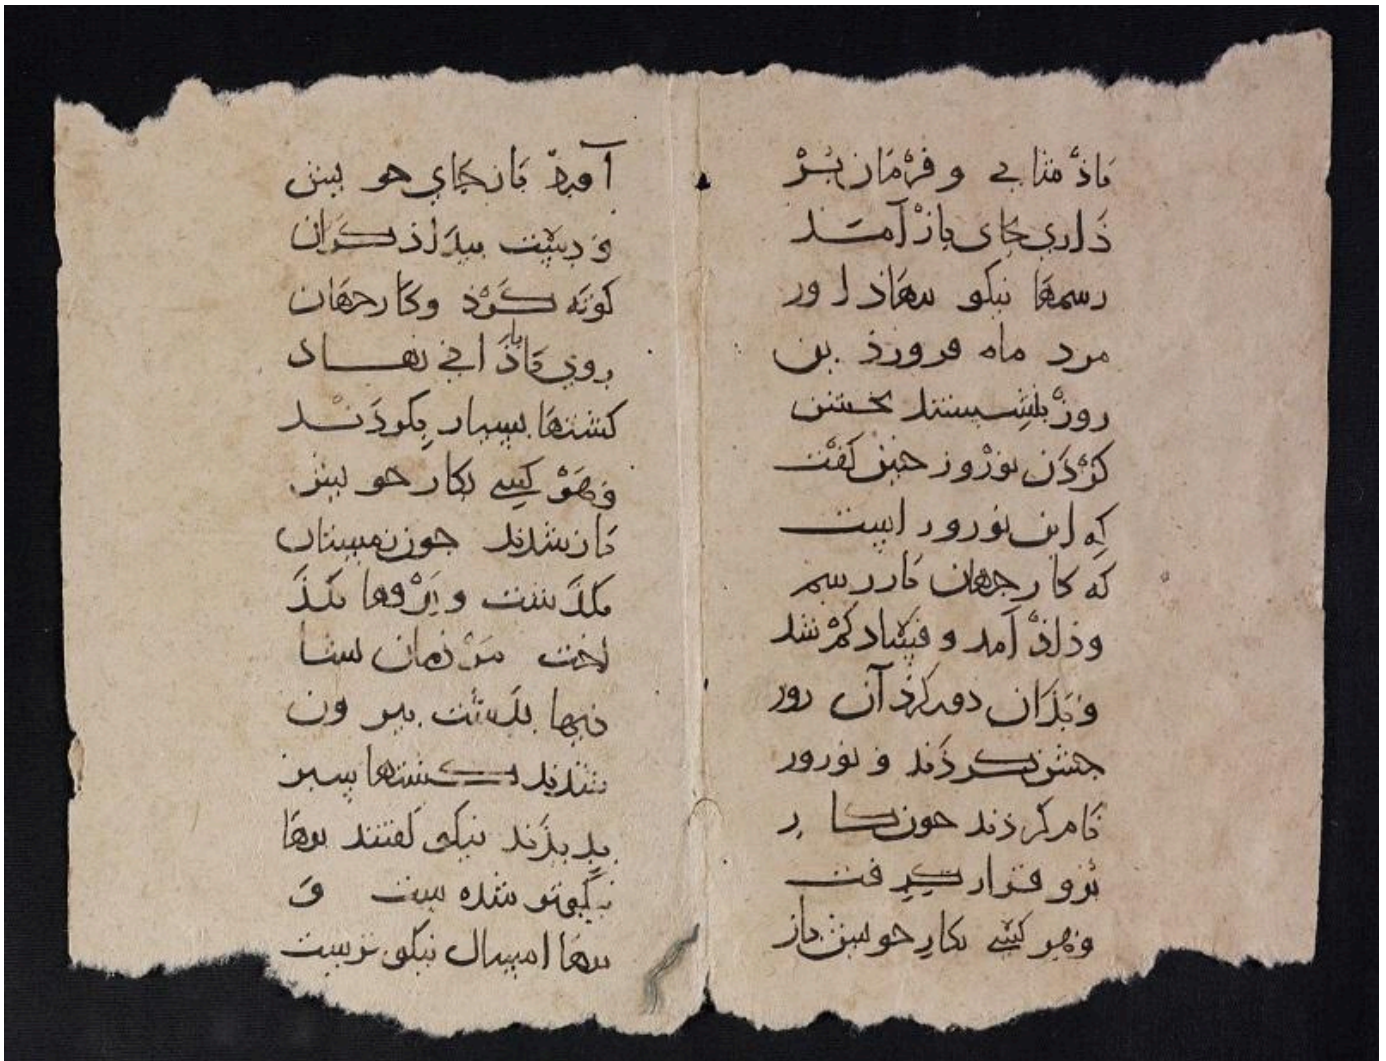 باذشایی و فرمان بر
ذاری جای باز آمد
رسمها نیکو بنهاذ اور
مرد ماه فرورذین
روز بنشستند جشن
کرذن نوروز جنین کفت
که این نوروز است
که کار جهان باز رسم
و داذ آمد و فساد کم شد
و بذان دور کرذ آن روز
جشن کرذند و نوروز
نام کرذند جون کار
برو قرار کرفت
و هر کسی بکار خویش باز
آورد باز جای خویش
و دست بیداذکران
کوته کرذ و کار جهان
روی باباذانی نهاد
کشتها بسیار بکرذند
و هر کسی بکار خویش
باز شدند جون زمستان
بکذشت و برفها بکذ
اخت مردمان بشا
دیها بدشت بیرون
شدند کشتها سبز
بدیذند نیکو کفتند بوها
نیکوتر شده ست و
بوها امسال نیکوترست